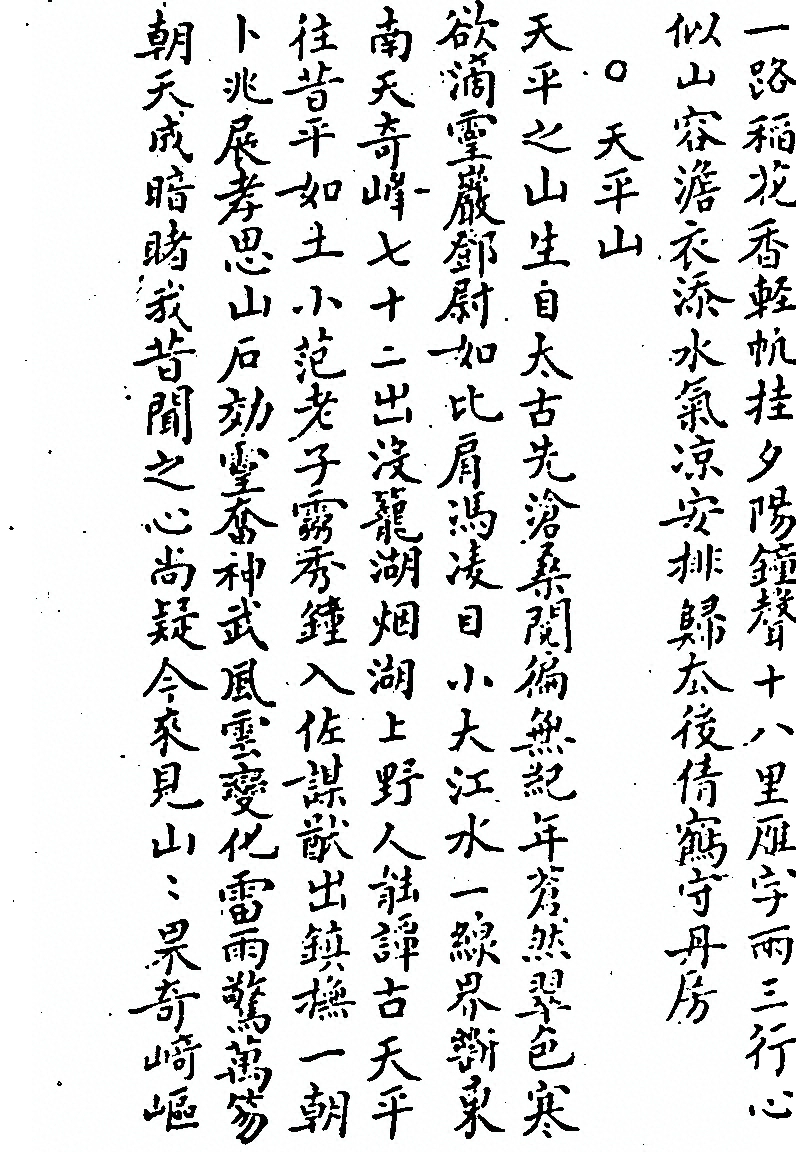 一路稻花香輕帆挂夕陽鐘聲十八里雁字兩三行心
似山容澹衣添水氣凉安排歸去後倩鶴守丹房
○天平山
天平之山生自太古先滄桑閱徧無紀年蒼然翠色寒
欲滴靈巖鄧尉如比肩馮凌目小大江水一線界斷東
南天奇峰七十二出沒籠湖烟湖上野人能譚古天平
往昔平如土小范老子霧秀鍾入佐謀猷出鎮撫一朝
卜兆展孝思山石効靈奮神武風雲變化雷雨驚萬笏
朝天成暗睹我昔聞之心尚疑今來見山〻果奇崎嶇